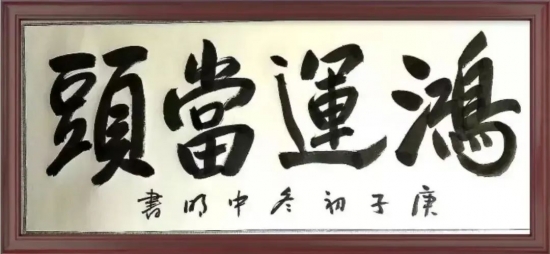 鴻運當頭
庚子初冬中明書